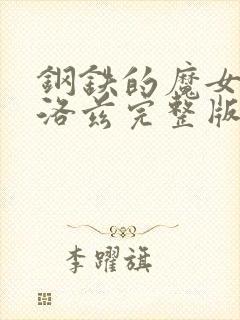 鋼鉄的魔女
洛茲完整版
李躍旗